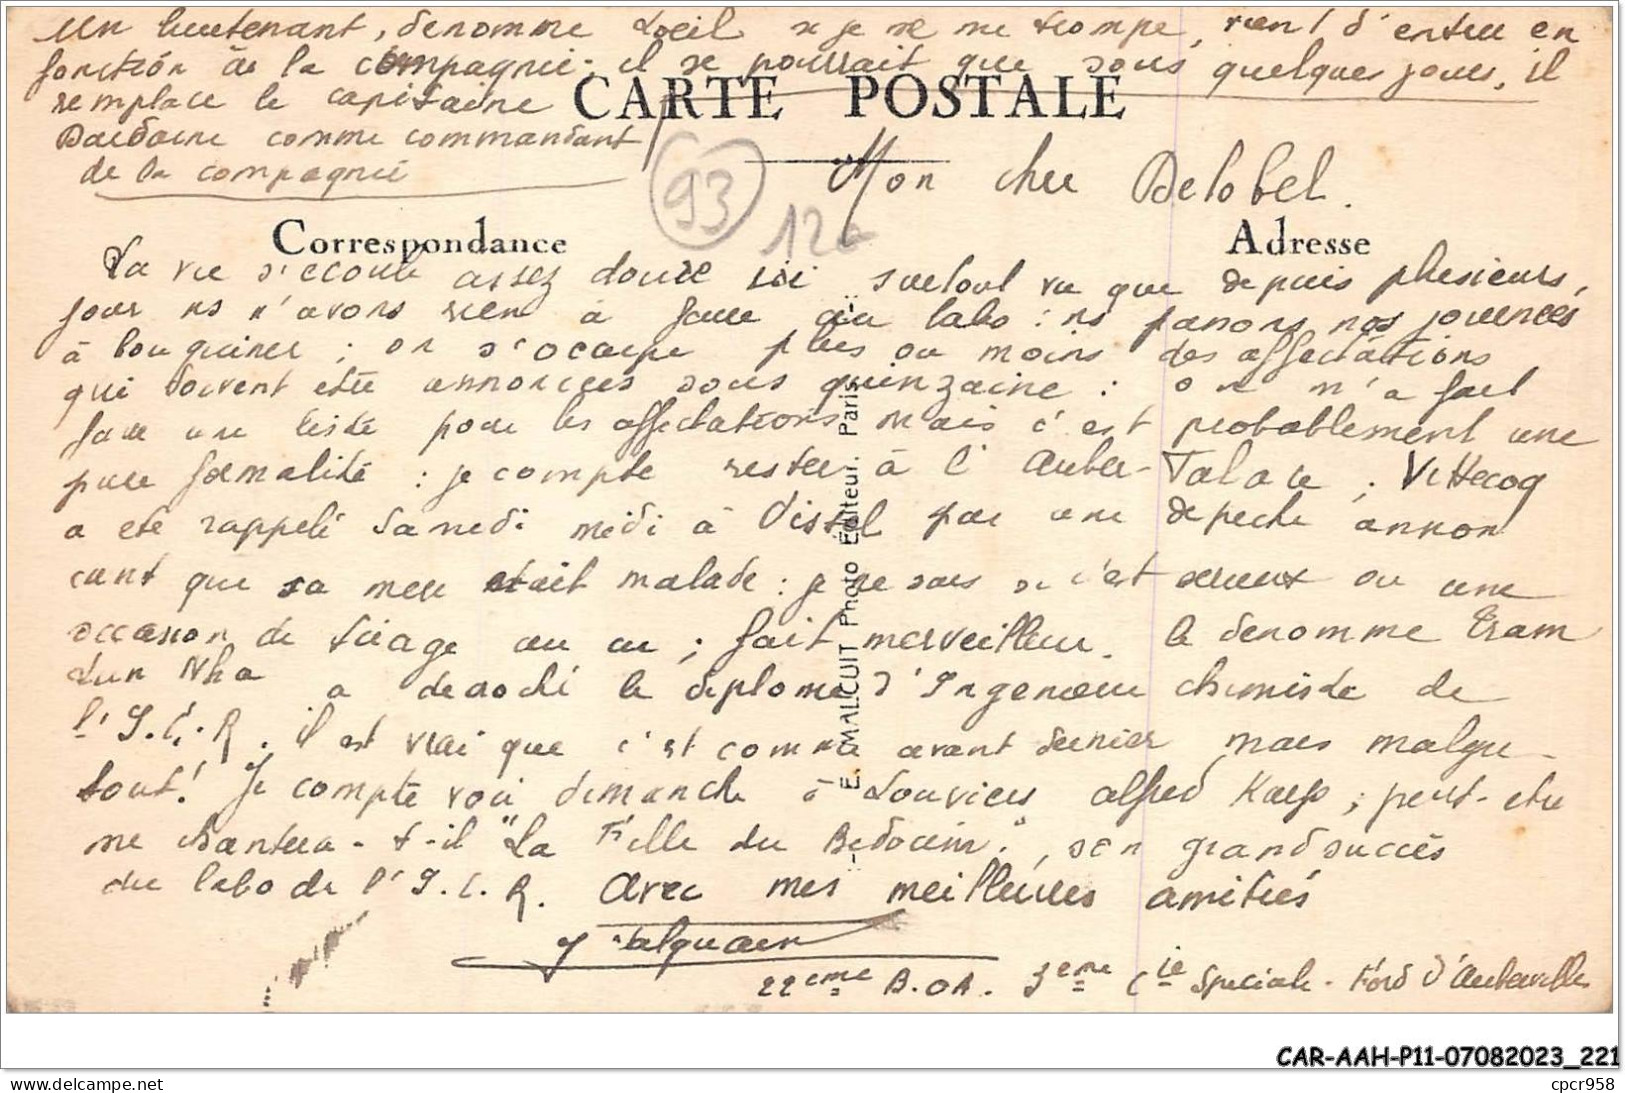 Un lieutenant, dénommé Loeil si je ne me trompe, vient d'entrer en
fonction à la compagnie; il se pourrait que sous quelques jours, il
remplace le capitaine
comme commandant
de la compagnie
CARTE POSTALE
93
12
Mon cher Delobel.
Correspondance
Adresse
La vie s'écoule assez douce ici surtout vu que depuis plusieurs
jour ns n'avons rien à faire au labo : ns passons nos journées
à bouquiner ; on s'occupe plus ou moins des affectations
qui doivent être annoncées sous quinzaine : on m'a fait
faire une liste pour les affectations mais c'est probablement une
pure formalité : je compte rester à l'Auber- ; Vittecoq
a été rappelé Samedi midi à par une dépêche annon
cant que sa mère était malade : je ne sais si c'est sérieux ou une
occasion de tirage au cu ; fait merveilleux. le dénommé Tram
Nha a décroché le diplome d'Ingénieur chimiste de
l'I.C.R. il est vrai que c'est comme avant dernier mais malgré
tout! Je compte voir dimanche à Louviers alfred Karp ; peut-être
me chantera-t-il "La Fille du Bédouin", son grand succès
du labo de l'I.C.R. Avec mes meilleures amitiés
22eme B.O.A. 3eme Cie Speciale - Ford d'Aubervilliers
E. MALCUIT Photo Editeur. Paris.
CAR-AAH-P11-07082023_221
www.delcampe.net
cpcr958